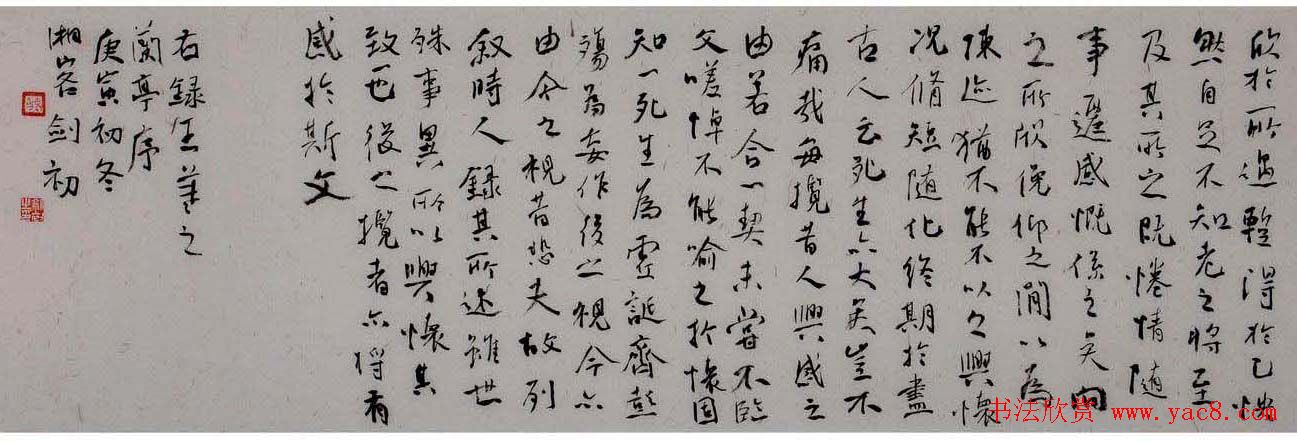 欣於所遇暫得於己快
然自足不知老之將至
及其所之既惓情隨
事遷感慨係之矣向
之所欣俛仰之間以為
陳迹猶不能不以之興懷
况脩短隨化終期於盡
古人云死生亦大矣豈不
痛哉每攬昔人興感之
由若合一契未嘗不臨
文嗟悼不能喻之於懷固
知一死生為虛誕齊彭
殤為妄作後之視今亦
由今之視昔悲夫故列
敘時人錄其所述雖世
殊事異所以興懷其
致一也後之攬者亦將有
感於斯文
右録王羲之
蘭亭序
庚寅初冬
湘山客劍初
书法欣赏 www.yac8.com